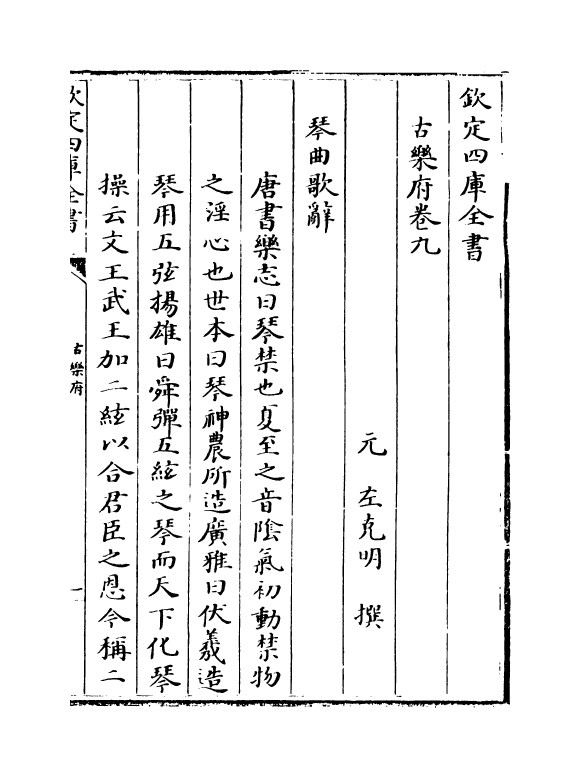 欽定四庫全書
古樂府卷九
元 左克明 撰
琴曲歌辭
唐書樂志曰琴禁也夏至之音陰氣初動禁物
之淫心也世本曰琴神農所造廣雅曰伏羲造
琴用五弦揚雄曰舜彈五絃之琴而天下化琴
操云文王武王加二絃以合君臣之恩今稱二
欽定四庫全書
古樂府
一